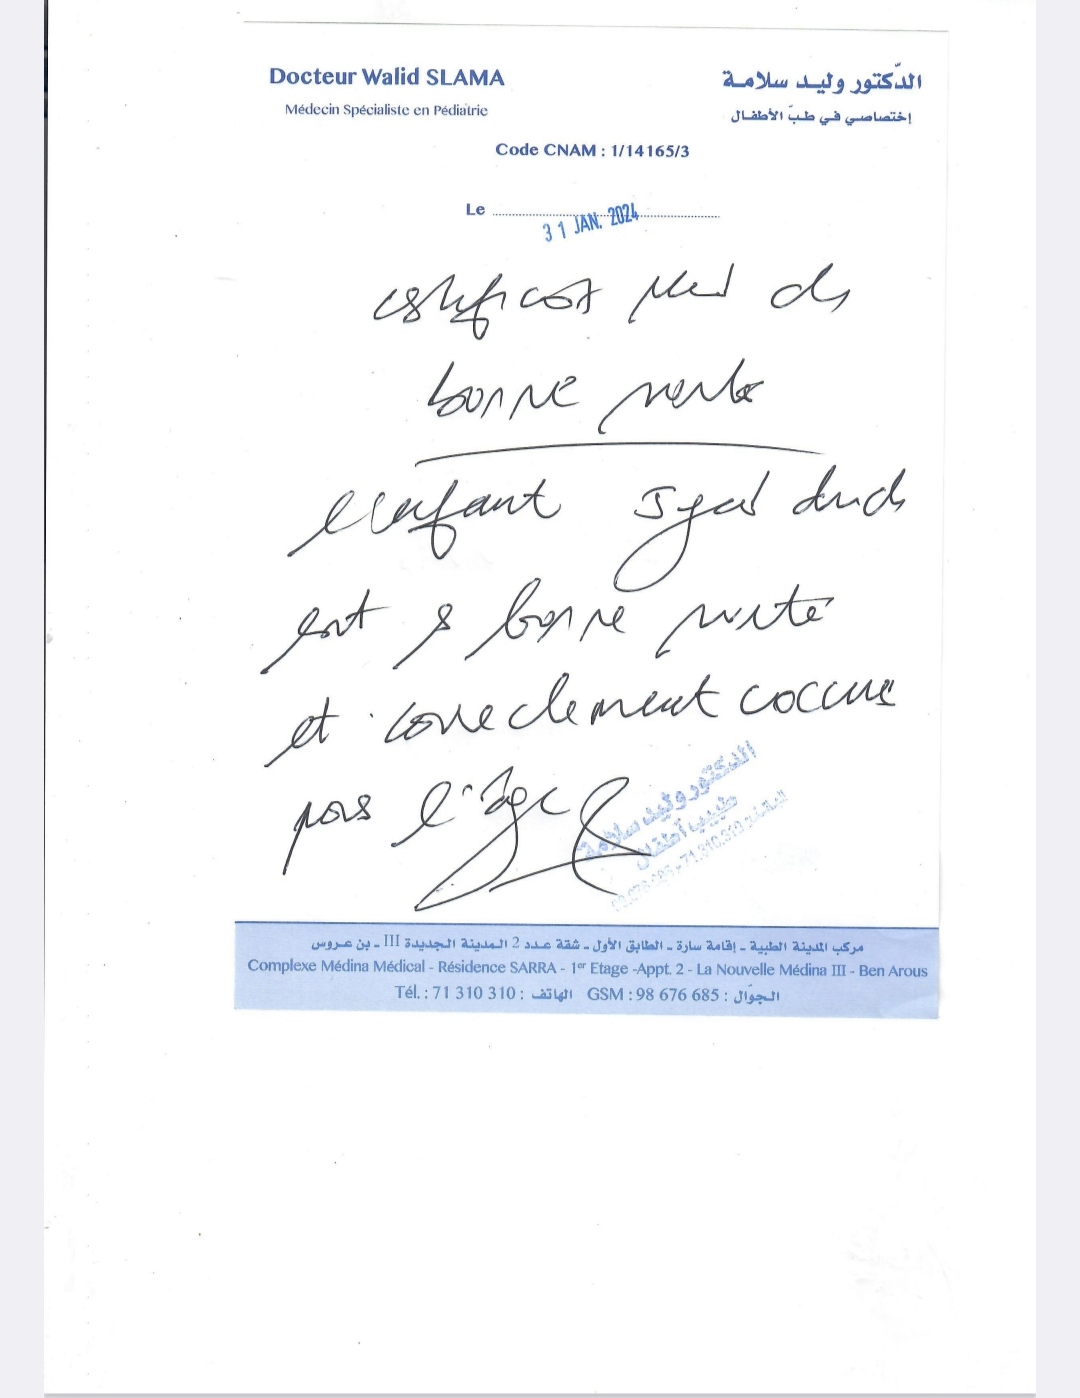 Docteur Walid SLAMA
الدّكتور وليد سلامة
Médecin Spécialiste en Pédiatrie
إختصاصي في طبّ الأطفال
Code CNAM : 1/14165/3
Le
31 JAN. 2024
certificat de
bonne santé
l'enfant Iyad
est bonne santé
et correctement
pas l'âge
الدكتور وليد سلامة
طبيب أطفال
71.310.310
مركب المدينة الطبية - إقامة سارة - الطابق الأول - شقة عدد 2 المدينة الجديدة III - بن عروس
Complexe Médina Médical - Résidence SARRA - 1er Etage -Appt. 2 - La Nouvelle Médina III - Ben Arous
Tél. : 71 310 310 : الهاتف GSM : 98 676 685 : الجوّال